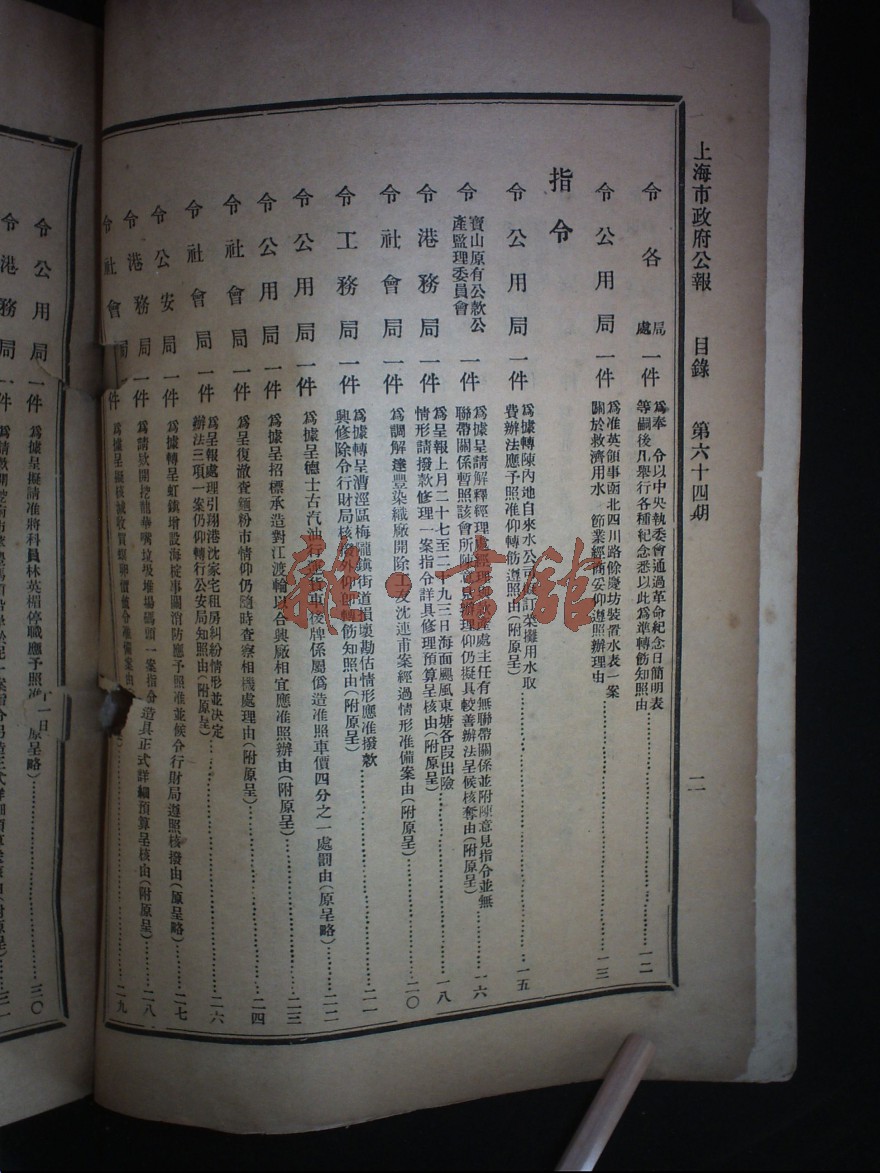 上海市政府公報　目錄　第六十四期　二
令各局處一件　為奉　令以中央執委會通過革命紀念日簡明表
等嗣後凡舉行各種紀念悉以此為準轉飭知照由　一二
令公用局一件　為准英領事函北四川路餘慶坊裝置水表一案
關於救濟用水　節業經　安仰遵照辦理由　一三
指令
令公用局一件　為據轉陳內地自來水公司　訂菜攤用水取
費辦法應予照准仰轉飭遵照由（附原呈）　一五
令寶山原有公款公產監理委員會一件　為據呈請解釋經理處經理與款產處主任有無聯帶關係並附陳意見指令並無
聯帶關係暫照該會所陳意見辦理仰擬具較善辦法呈候核奪由（附原呈）　一六
令港務局一件　為呈報上月二十七至二十九三日海面颶風東塘各段出險
情形請撥款修理一案指令詳具修理預算呈核由（附原呈）　一八
令社會局一件　為調解達豐染織廠開除工友沈連甫案經過情形准備案由（附原呈）　二〇
令工務局一件　為據轉呈漕涇區梅隴鎮街道損壞勘估情形應准撥款
興修除令行財局核發外仰即轉飭知照由（附原呈）　二一
令公用局一件　為據呈德士古汽油行運貨車後牌係屬偽造准照車價四分之一處罰由（原呈略）　二二
令公用局一件　為據呈招標承造對江渡輪以合興廠相宜應准照辦由（附原呈）　二三
令社會局一件　為呈復澈查麵粉市情仰仍隨時查察相機處理由（附原呈）　二四
令社會局一件　為呈報處理引翔港沈家宅租房糾紛情形並決定
辦法三項一案仍仰轉行公安局知照由（附原呈）　二六
令公安局一件　為據轉呈虹鎮增設海淀事關消防應予照准並候令行財局遵照核撥由（原呈略）　二七
令港務局一件　為請款開挖龍華嘴垃圾堆場碼頭一案指令造具正式詳細預算呈核由（附原呈）　二八
令社會局一件　為據呈擬核減收買螺卵價值令准備案由　二九
令公用局一件　為據呈擬請准將科員林英楣停職應予照准　原呈略）　三〇
令港務局一件　三一
雜·書館